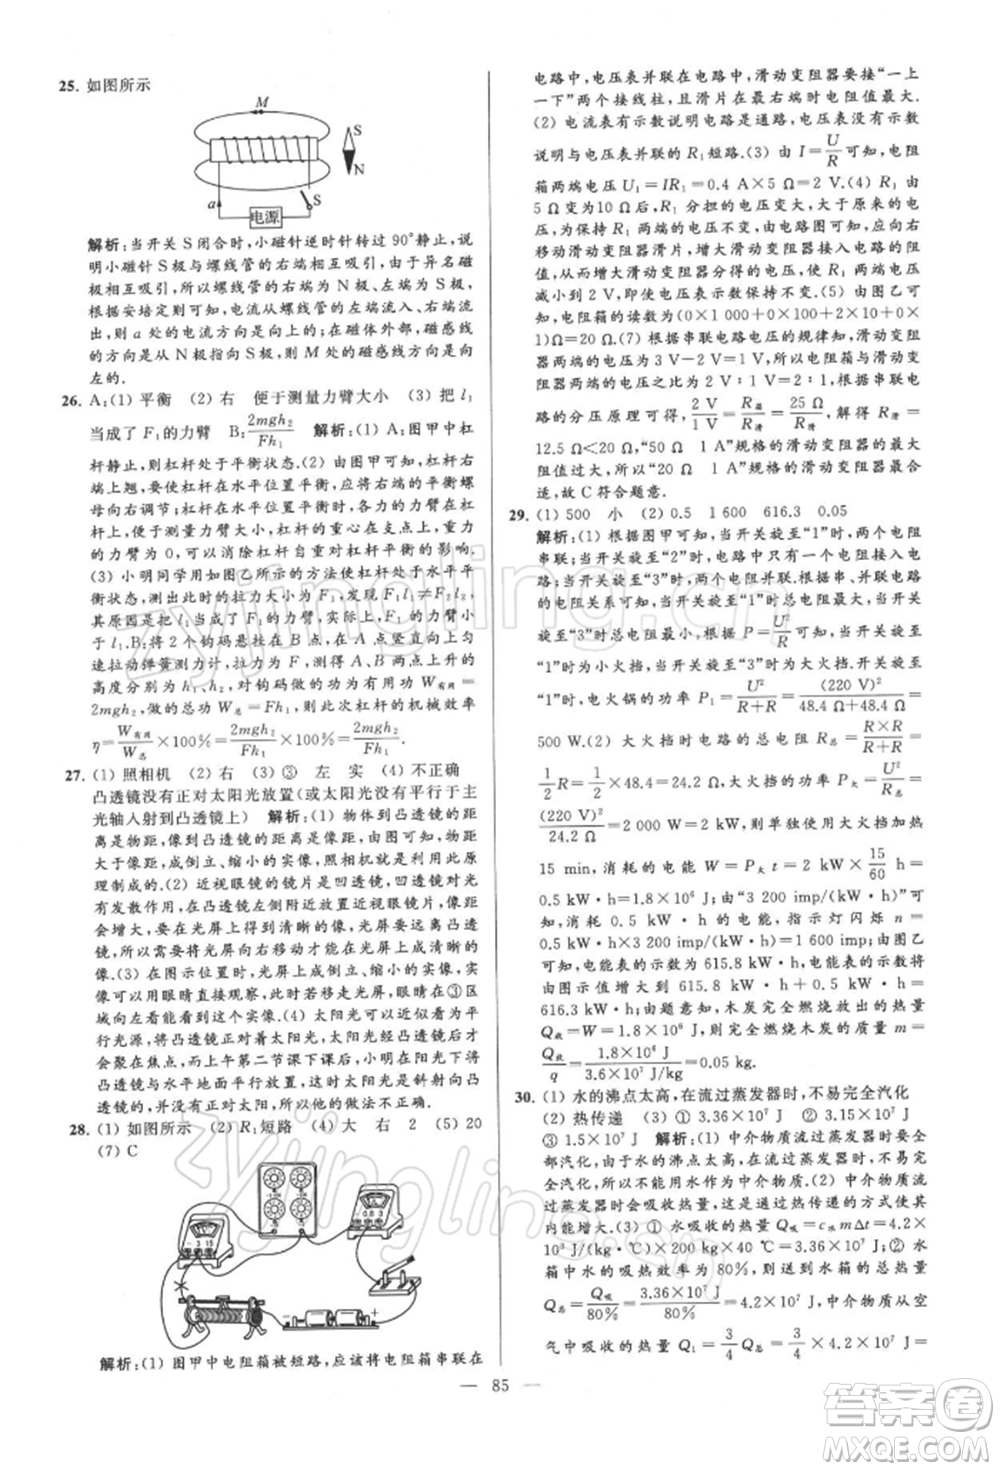 25. 如图所示
M
S
N
a
电源
S
解析:当开关 S 闭合时,小磁针逆时针转过 90°静止,说
明小磁针 S 极与螺线管的右端相互吸引,由于异名磁
极相互吸引,所以螺线管的右端为 N 极、左端为 S 极.
根据安培定则可知,电流从螺线管的左端流入、右端流
出,则 a 处的电流方向是向上的;在磁体外部,磁感线
的方向是从 N 极指向 S 极,则 M 处的磁感线方向是向
左的.
26. A:(1) 平衡 (2) 右 便于测量力臂大小 (3) 把 l₁
当成了 F₁ 的力臂 B: 2mgh₂/Fh₁ 解析:(1) A:图甲中杠
杆静止,则杠杆处于平衡状态.(2) 由图甲可知,杠杆右
端上翘,要使杠杆在水平位置平衡,应将杠杆的平衡螺
母向右调节;杠杆在水平位置平衡,各个力的力臂大小
便于测量力臂大小,杠杆的重心在支点处,重力的力臂
为 0,可以消除杠杆自重对杠杆平衡的影响.
(3) 小明同学用如图乙所示的方法使杠杆处于水平平
衡状态,测出的拉力大小为 F₁,发现 F₁l₁≠F₂l₂,
其原因是把 l₁ 当成了 F₁ 的力臂,实际上 F₁ 的力臂小
于 l₁.B:将 2 个钩码悬挂在 B 点,在 A 点竖直向上匀
速拉动弹簧测力计,拉力大小为 F,測得 A、B 两点上升的
高度分别为 h₁、h₂,对钩码做的总功 W有用=
2mgh₂,做的总功 W总=Fh₁,则此次杠杆的机械效率
η=W有用/W总×100%=2mgh₂/Fh₁×100%=2mgh₂/Fh₁.
27. (1) 照相机 (2) 右 (3) ③ 左 实 (4) 不正确
凸透镜没有正对太阳光放置(或太阳光没有平行于主
光轴入射到凸透镜上) 解析:(1) 物体到凸透镜的距
离是物距,像到凸透镜的距离是像距,由图可知,物距
大于像距,成倒立、缩小的实像,照相机是根据此
原理制成的.(2) 近视眼镜的镜片是凹透镜,凹透镜对光
有发散作用,在凸透镜左侧附近放置一凹透镜,像距
会增大,要在光屏上得到清晰的像,光屏要远离凸透
镜,所以需要将光屏向右移动才能在光屏上成清晰的
像.(3) 在图示位置时,光屏上成倒立、缩小的实像,实像
可以用眼睛直接观察,此时若移走光屏,眼睛在③区
域向左看能看到该像.(4) 太阳光可以看成平行光,太
阳光正对凸透镜照射时,太阳光经凸透镜折射后才
会聚在焦点,而上午第二节课下课后,小明在阳光下将
凸透镜与水平地面平行放置,这时太阳光是斜射向凸
透镜的,没有正对太阳,所以他的做法不正确.
28. (1) 如图所示 (2) R₁短路 (4) 大 右 2 (5) 20
(7) C
解析:(1) 图甲中电阻箱被短路,应该将电阻箱串联在
电路中,电压表并联在电路中,滑动变阻器要接“一上
一下”两个接线柱,且滑片在最右端时电阻值最大.
(2) 电流表有示数说明电路是通路,电压表没有示数
说明与电压表并联的 R₁ 短路.(3) 由 I=U/R 可知,电阻
箱两端电压 U₁=IR₁=0.4 A×5 Ω=2 V.(4) R₁
变为10 Ω后,R₁ 分担的电压变大,大于原来的电
压,为保持 R₁ 两端的电压不变,增大滑动变阻器的电阻,应向右
移动滑动变阻器滑片,增大滑动变阻器接入电路的电阻
值,从而增大滑动变阻器分得的电压,使 R₁ 两端电压
减小到 2 V,即电压表示数保持不变.(5) 由图乙可
知,电阻箱的读数为(0×1 000+0×100+2×10+0×
1)Ω=20 Ω.(7) 根据串联电路电压的规律知,滑动变
阻器两端的电压为3 V−2 V=1 V,所以电阻箱与滑动
变阻器两端的电压之比为 2 V∶1 V=2∶1,根据串联电
路的分压原理可得,2 V/1 V=R箱/R滑=25 Ω/R滑,解得 R滑=
12.5 Ω<20 Ω,“50 Ω 1 A”规格的滑动变阻器的最大
阻值过大,所以“20 Ω 1 A”规格的滑动变阻器最合
适,故 C 符合题意.
29. (1) 500 小 (2) 0.5 1 600 616.3 0.05
解析:(1) 根据图甲可知,当开关旋至“1”时,两电阻
串联;当开关旋至“2”时,电路中没有电流,处于断开状
态;当开关旋至“3”时,两电阻并联.根据串、并联电路
的电阻关系可知,当开关旋至“1”时,总电阻最大,当开
关旋至“3”时,总电阻最小.根据 P=U²/R 可知,当开关旋至
“1”时为小火挡,当开关旋至“3”时为大火挡.当开关旋至
“1”时,电火锅的功率 P₁=U²/(R+R)=(220 V)²/(48.4 Ω+48.4 Ω)=
500 W.(2) 大火挡时电路的总电阻 R总=(R×R)/(R+R)=
1/2R=1/2×48.4=24.2 Ω,大火挡的功率 P大=U²/R总=
(220 V)²/24.2 Ω=2 000 W=2 kW,则单独使用大火挡加热
15 min,消耗的电能 W=P大t=2 kW×15/60 h=
0.5 kW·h=1.8×10⁶ J;由“3 200 imp/(kW·h)”可
知,消耗 0.5 kW·h 的电能,指示灯闪烁 n=
0.5 kW·h×3 200 imp/(kW·h)=1 600 imp;由图乙
可知,电能表的示数为 615.8 kW·h,工作完成后,电
能表的示数为 615.8 kW·h+0.5 kW·h=
616.3 kW·h;由题意知,木炭完全燃烧放出的热量
Q放=W=1.8×10⁶ J,则完全燃烧木炭的质量 m=
Q放/q=1.8×10⁶ J/3.6×10⁷ J/kg=0.05 kg.
30. (1) 水的沸点太高,在流过蒸发器时,不易完全汽化
(2) 热传递 (3) ① 3.36×10⁷ ② 4.2×10⁷
③ 1.5×10⁷ 解析:(1) 中介物质流过蒸发器时要全
部汽化,而水的沸点太高,在流过蒸发器时,不易完全
汽化,所以不能用水作为中介物质.(2) 中介物质流
过蒸发器时会吸收热量,通过热传递的方式使其
内能增大.(3) ① 水吸收的热量 Q吸=c水mΔt=4.2×
10³ J/(kg·℃)×200 kg×40 ℃=3.36×10⁷ J;② 水
箱中水的吸热效率为 80%,这时水箱的总热量
Q总=Q吸/80%=3.36×10⁷ J/80%=4.2×10⁷ J,中介物质从空
气中吸收的热量 Q₁=3/4 Q总=3/4×4.2×10⁷ J=
— 85 —
zyjingling.cn
zyjingling.cn
答案圈
MXQE.COM